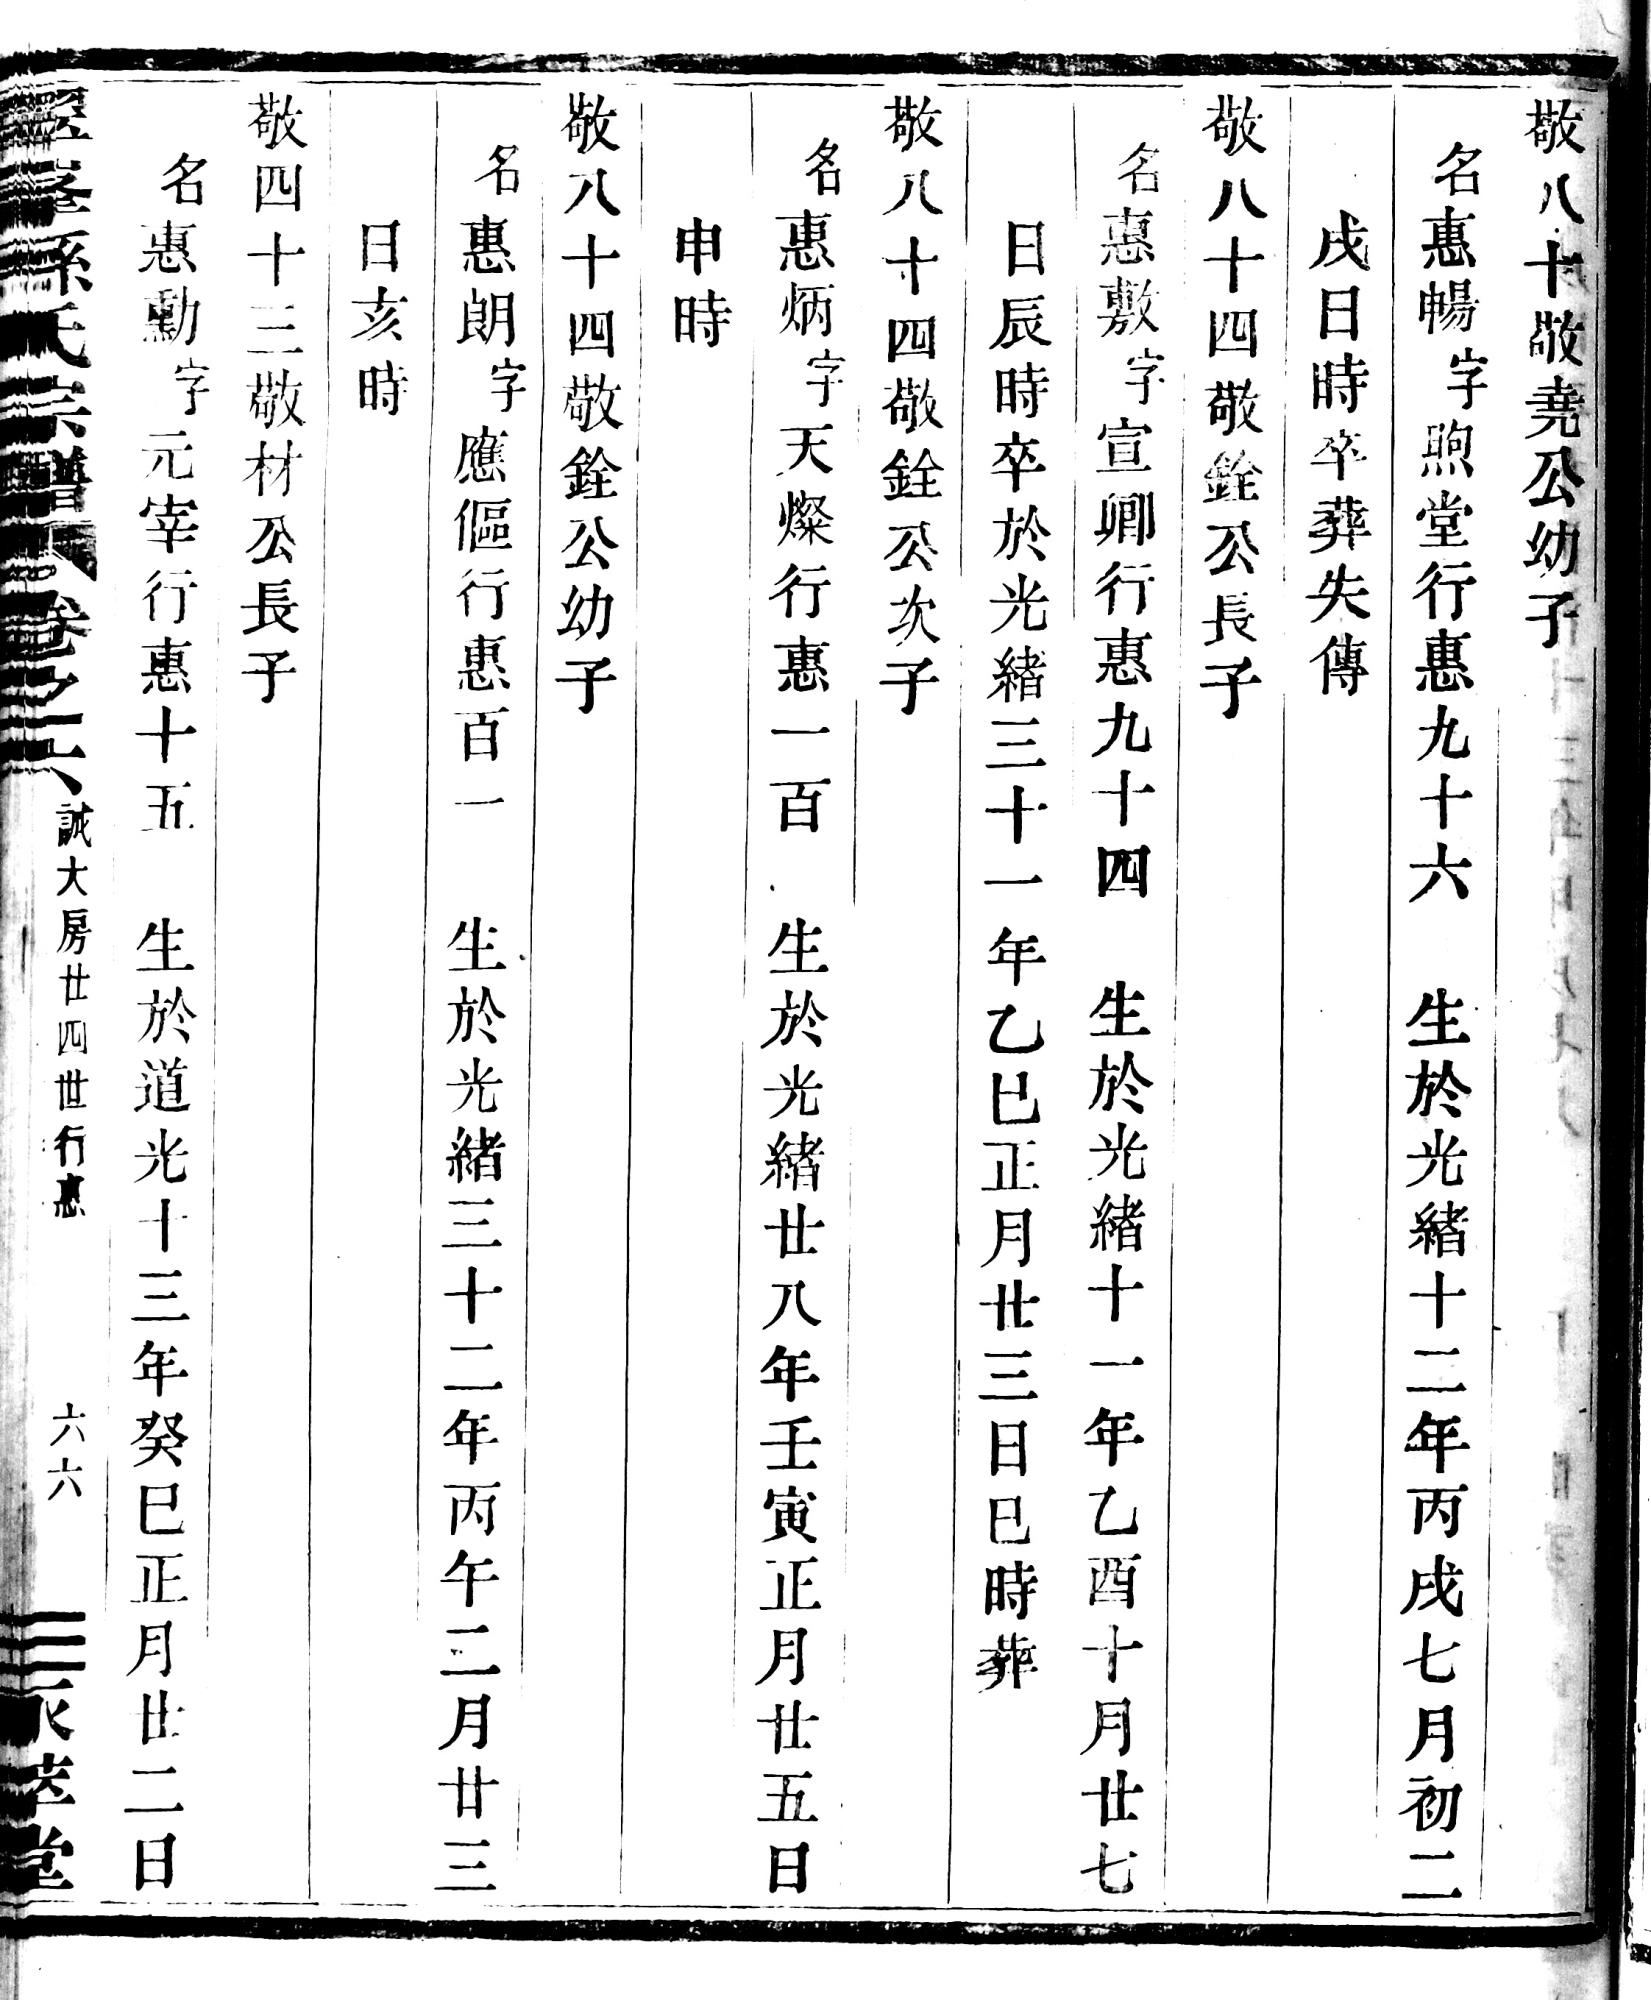 敬八十敬堯公幼子
名惠暢字煦堂行惠九十六　生於光緒十二年丙戌七月初二
戌日時卒葬失傳
敬八十四敬銓公長子
名惠敷字宣卿行惠九十四　生於光緒十一年乙酉十月廿七
日辰時卒於光緒三十一年乙巳正月廿三日巳時葬
敬八十四敬銓公次子
名惠炳字天燦行惠一百　生於光緒廿八年壬寅正月廿五日
申時
敬八十四敬銓公幼子
名惠朗字應傴行惠百一　生於光緒三十二年丙午二月廿三
日亥時
敬四十三敬材公長子
名惠勳字元宰行惠十五　生於道光十三年癸巳正月廿二日
孫氏宗譜　卷之六　誠大房廿四世行惠　六六　堂